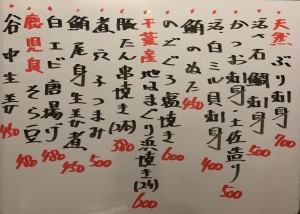 天然ぶり刺身 700
活〆石鯛刺身
かつお刺身・土佐造り 500
活白ミル貝刺身 400
鮪のぬた 450
のどぐろ塩焼き 600
千葉産 地はまぐり浜焼き(2ケ) 600
豚たん串焼き(2本) 380
煮穴子つまみ 500
鮪尾身生姜煮 450
白エビ唐揚げ 480
鹿児島そら豆 480
谷中生姜 450